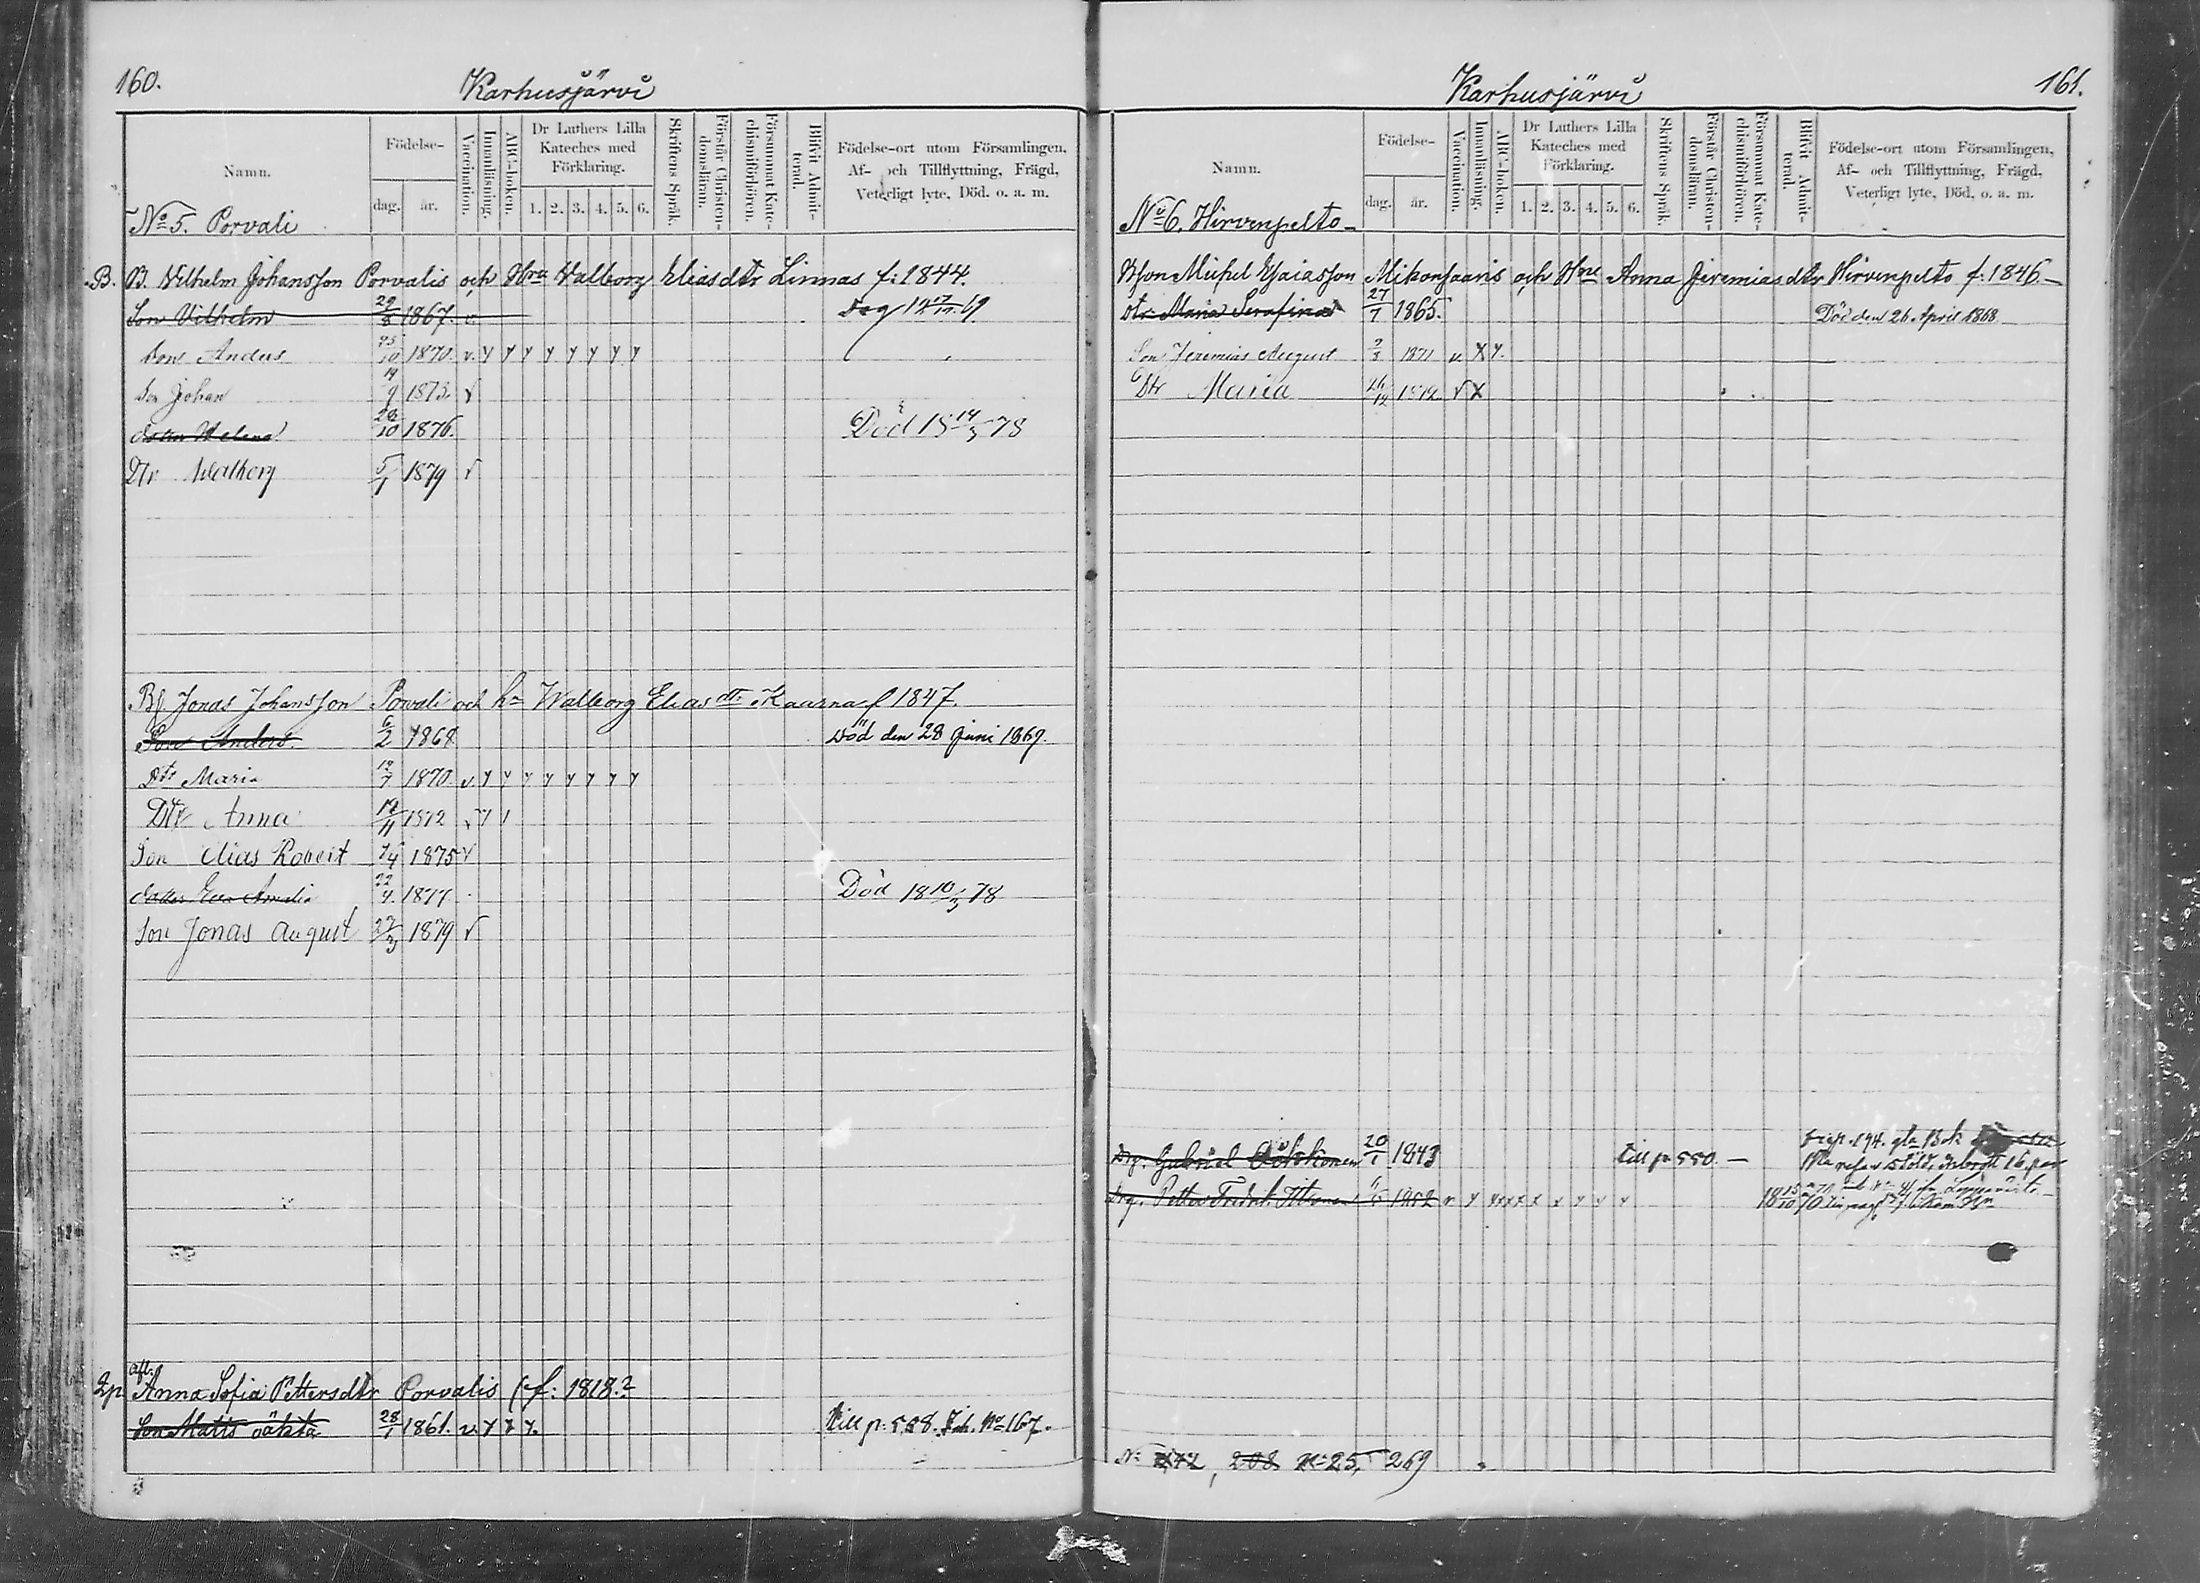 160.
Karhusjärvi
Namn.
Födelse-
dag.
år.
Vaccination.
Innanläsning.
ABC-boken.
Dr Luthers Lilla
Kateches med
Förklaring.
1. 2. 3. 4. 5. 6.
Skriftens Språk.
Förstår Christen-
domslärn.
Försummat Kate-
chismiförhören.
Blifvit Admit-
terad.
Födelse-ort utom Församlingen,
Af- och Tillflyttning, Frägd,
Veterligt lyte, Död. o. a. m.
No 5. Porvali
B. B. Vilhelm Johansson Porvalis och Hru Valborg Eliasdtr Linnas f: 1844.
Son Vilhelm 29/8 1867. v.
Son Anders 25/10 1870. v. y y y y y y y y
Son Johan 19/9 1873. v
Dotter Helena 26/10 1876. Död 18 14/3 78
Dtr Walborg 5/1 1879 v
Bf. Jonas Johansson Porvali och hu Walborg Elias dtr Kaurna f 1847.
Son Anders 6/2 1868 Död den 28 Juni 1869.
Dtr Maria 12/7 1870. v. y y y y y y y y
Dtr Anna 19/11 1872 v y 1
Son Elias Robert 7/4 1875 v
Dotter Eva Amalia 22/4 1877. Död 18 10/3 78
Son Jonas August 27/3 1879 v
afl.
Anna Sofia Pettersdtr Porvalis f: 1818.?
Son Matts 28/1 1861. v. y y y. till p: 528. No 167.
161.
Karhusjärvi
Namn.
Födelse-
dag.
år.
Vaccination.
Innanläsning.
ABC-boken.
Dr Luthers Lilla
Kateches med
Förklaring.
1. 2. 3. 4. 5. 6.
Skriftens Språk.
Förstår Christen-
domslärn.
Försummat Kate-
chismiförhören.
Blifvit Admit-
terad.
Födelse-ort utom Församlingen,
Af- och Tillflyttning, Frägd,
Veterligt lyte, Död, o. a. m.
No 6. Hirvenpelto
Michel Esaiasson Mikonsaaris och Hru Anna Jeremiasdtr Hirvenpelto f: 1846.
Dtr Maria Serafina 27/1 1865. Död den 26 April 1868
Son Jeremias August 2/8 1871 v. X y.
Dtr Maria 26/12 v X
Drg. Gabriel 20/1 1843 till p. 550. —
Drg. Petter Fredrik 1852 v y
No 208 No 25, 269